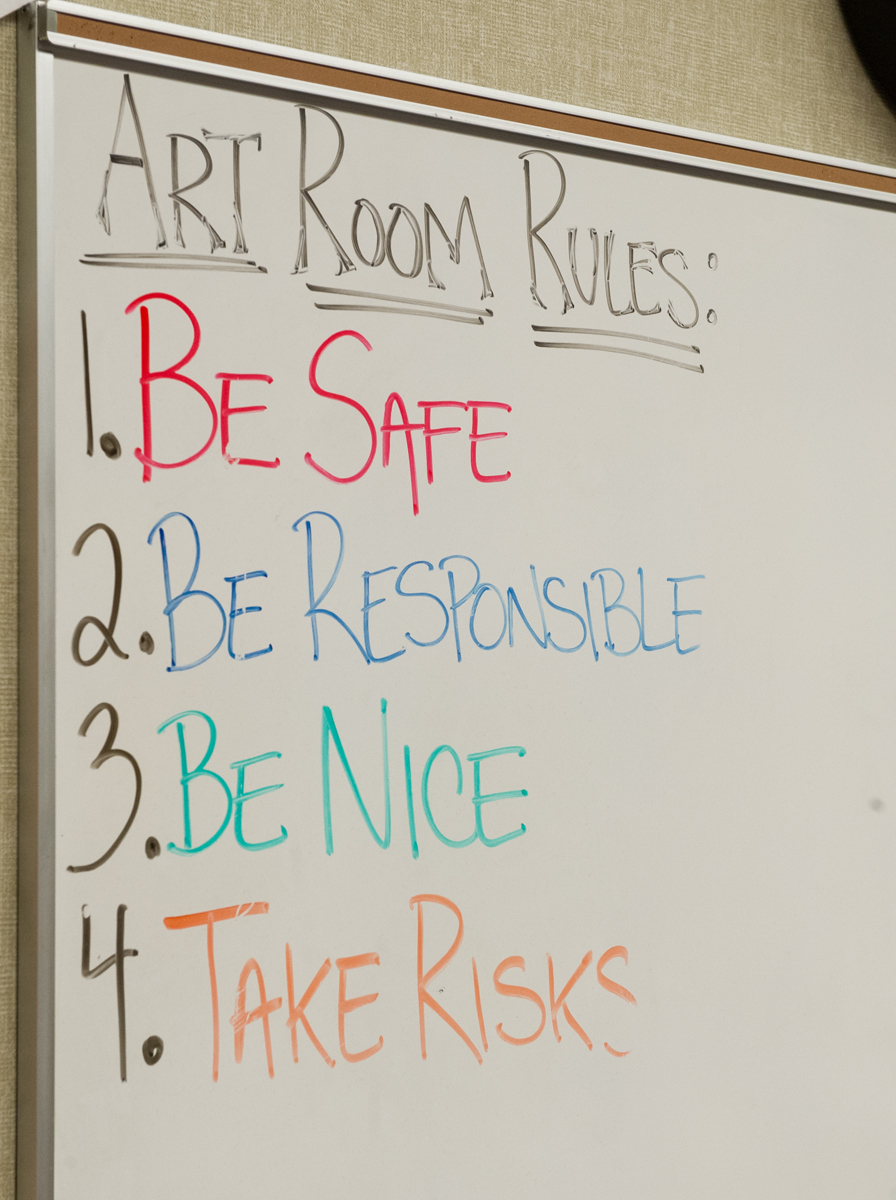 ART ROOM RULES:
1. BE SAFE
2. BE RESPONSIBLE
3. BE NICE
4. TAKE RISKS